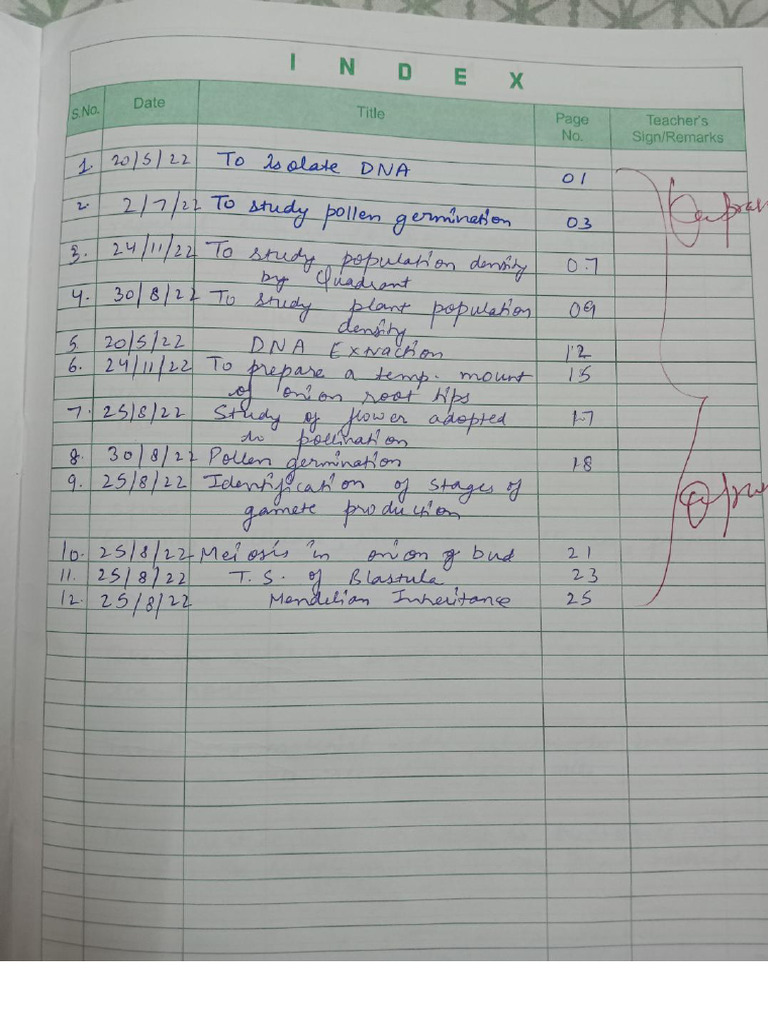 INDEX
S.No. Date Title Page No. Teacher's Sign/Remarks
1. 20/5/22 To Isolate DNA 01
2. 2/7/22 To study pollen germination 03
3. 24/11/22 To study population density 07
by Quadrant
4. 30/8/22 To study plant population 09
density
5. 20/5/22 DNA Extraction 12
6. 24/11/22 To prepare a temp. mount 15
of onion root tips
7. 25/8/22 Study of flower adopted 17
to pollination
8. 30/8/22 Pollen germination 18
9. 25/8/22 Identification of stages of
gamete production
10. 25/8/22 Meiosis in onion bud 21
11. 25/8/22 T.S. of Blastula 23
12. 25/8/22 Mendelian Inheritance 25